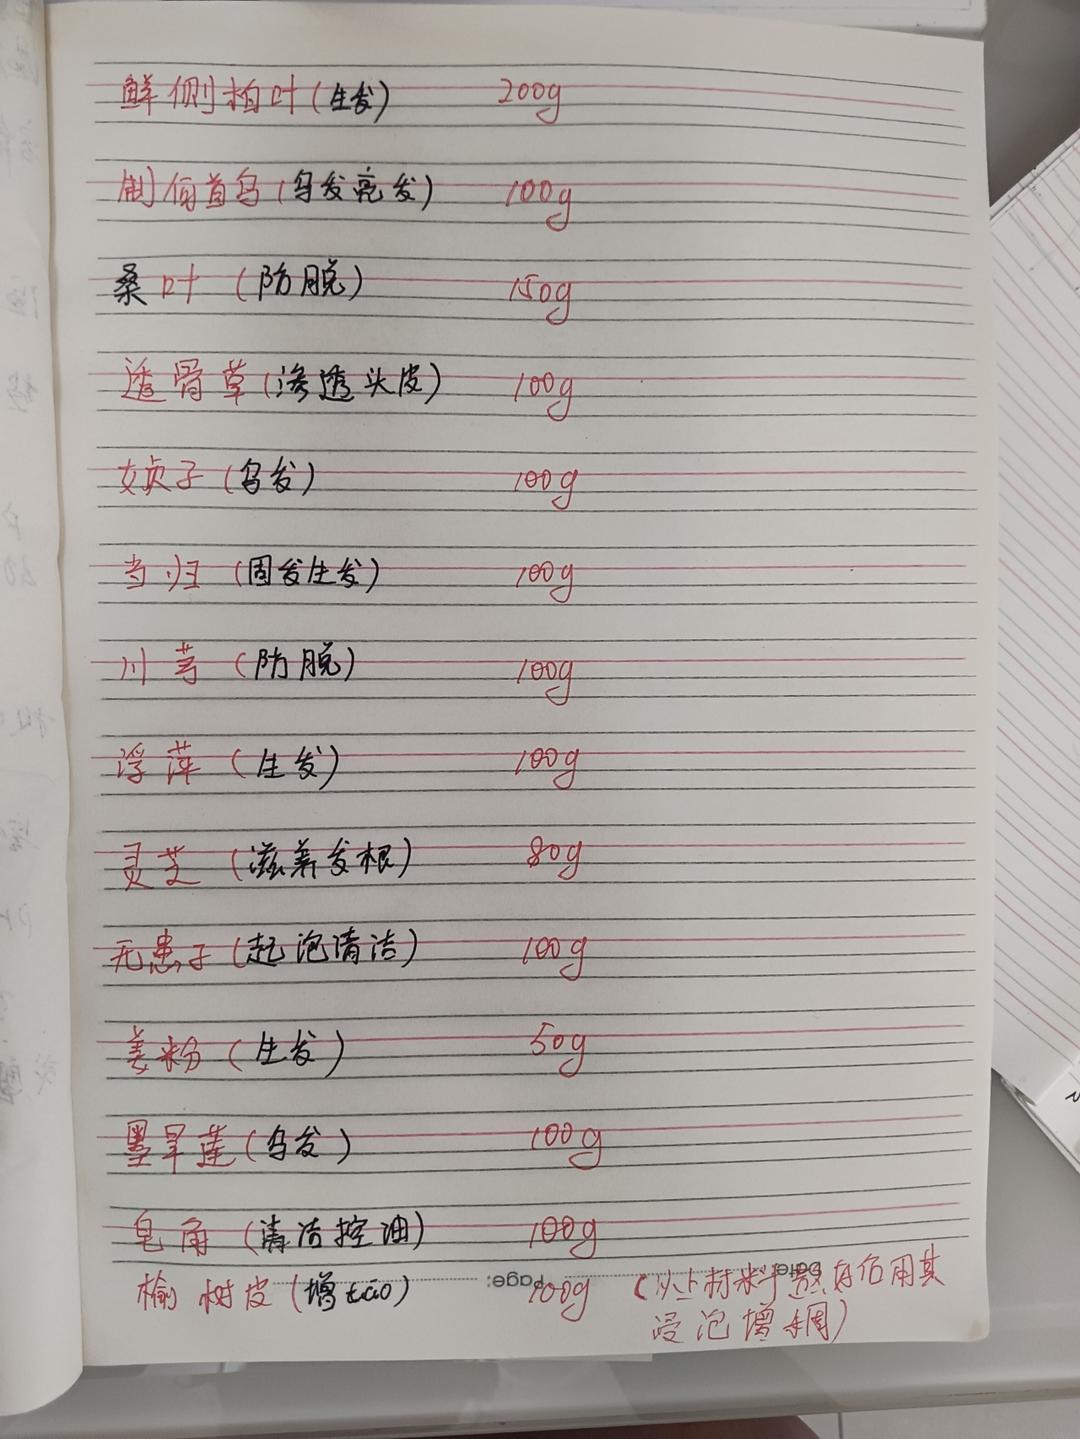 鲜侧柏叶(生发) 200g
制何首乌(乌发亮发) 100g
桑叶(防脱) 150g
透骨草(渗透头皮) 100g
女贞子(乌发) 100g
当归(固发生发) 100g
川芎(防脱) 100g
浮萍(生发) 100g
灵芝(滋养发根) 80g
无患子(起泡清洁) 100g
姜粉(生发) 50g
墨旱莲(乌发) 100g
皂角(清洁控油) 100g
Page: Date:
榆树皮(增túo) 100g (以上材料熬好后用其
浸泡增稠)